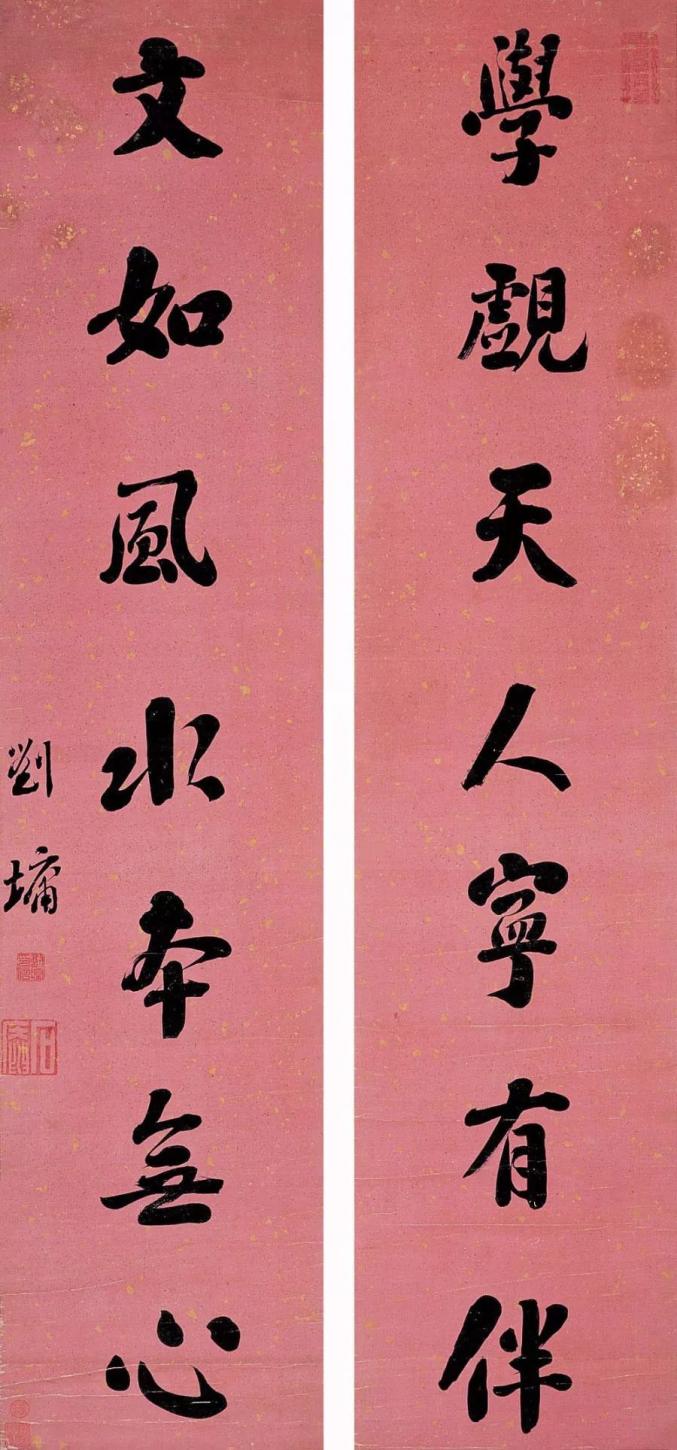 學覷天人寧有伴
文如風水本無心
劉墉
石菴